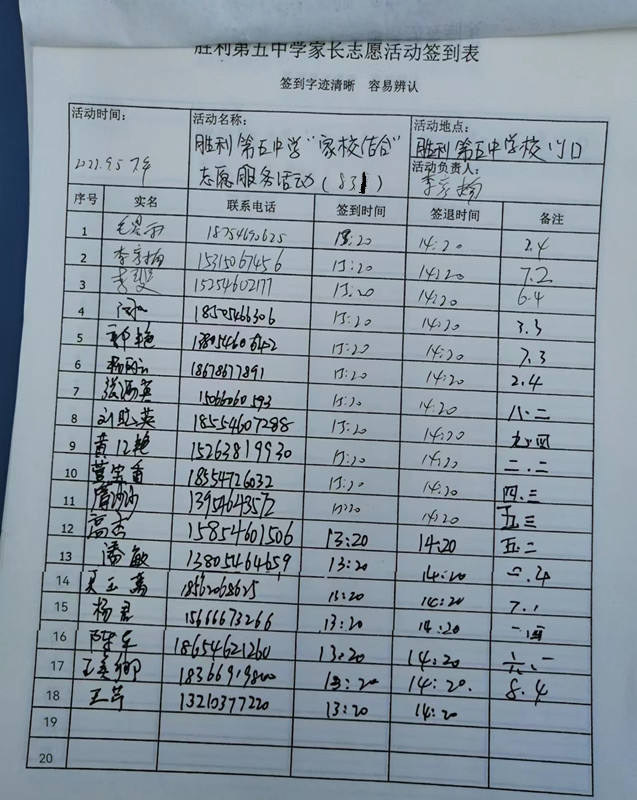 胜利第五中学家长志愿活动签到表
签到字迹清晰 容易辨认
活动时间: 活动名称: 活动地点:
胜利第五中学"家校结合" 胜利第五中学校门口
志愿服务活动(831) 活动负责人:
李彦梅
序号 实名 联系电话 签到时间 签退时间 备注
1 18754690625 13:20 14:20 2.4
2 李彦梅 15315067456 13:20 14:20 7.2
3 15254602177 13:20 14:20 6.4
4 18505466306 13:20 14:20 3.3
5 郭艳 13:20 14:20 7.3
6 18678677891 13:20 14:20 2.4
7 15066060593 13:20 14:20 八.二
8 刘晓英 18554607288 13:20 14:20 九.四
9 黄红艳 15263819930 13:20 14:20 二.二
10 18554726032 13:20 14:20 四.三
11 13954643572 13:20 14:20 五.三
12 高杰 15854601506 13:20 14:20 五.二
13 潘敏 13805464659 13:20 14:20 一.4
14 18562068625 13:20 14:20 7.1
15 杨君 15666673266 13:20 14:20 一.四
16 陈军 18654621260 13:20 14:20 六.一
17 王美卿 18366919800 13:20 14:20. 8.4
18 王芹 13210377220 13:20 14:20
19
20